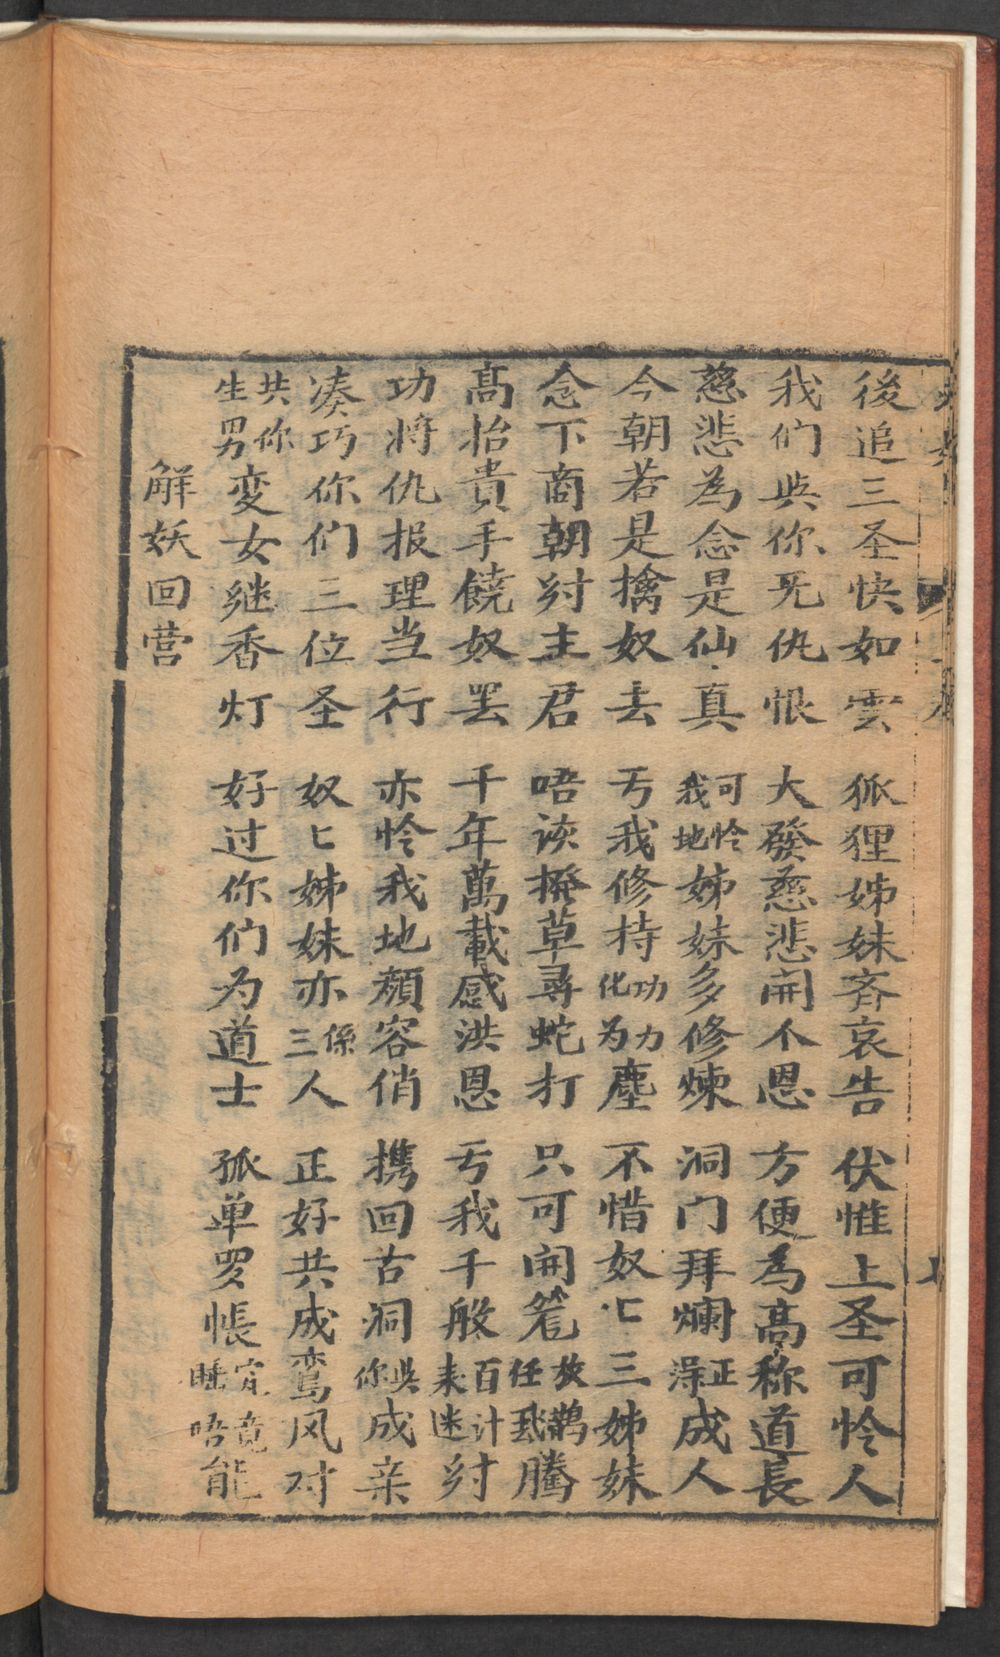 後追三圣快如雲　狐狸姊妹斉哀告　伏惟上圣可怜人
我们與你无仇恨　大發慈悲開个恩　方便為高称道長
慈悲為念是仙真　可怜我地姊妹多修煉　洞门拜爛正淂成人
今朝若是擒奴去　亏我修持功力化为塵　不惜奴匕三姊妹
念下商朝紂主君　唔诶撥草尋蛇打　只可開笼放鹊任我騰
髙抬貴手饒奴罢　千年萬載感洪恩　亏我千般百计来迷紂
功将仇报理当行　亦怜我地颜容俏　携回古洞與你成亲
凑巧你们三位圣　奴匕姊妹亦係三人　正好共成鸾凤对
共你生男変女继香灯　好过你们为道士　孤单罗帳究竟睡唔能
解妖回营